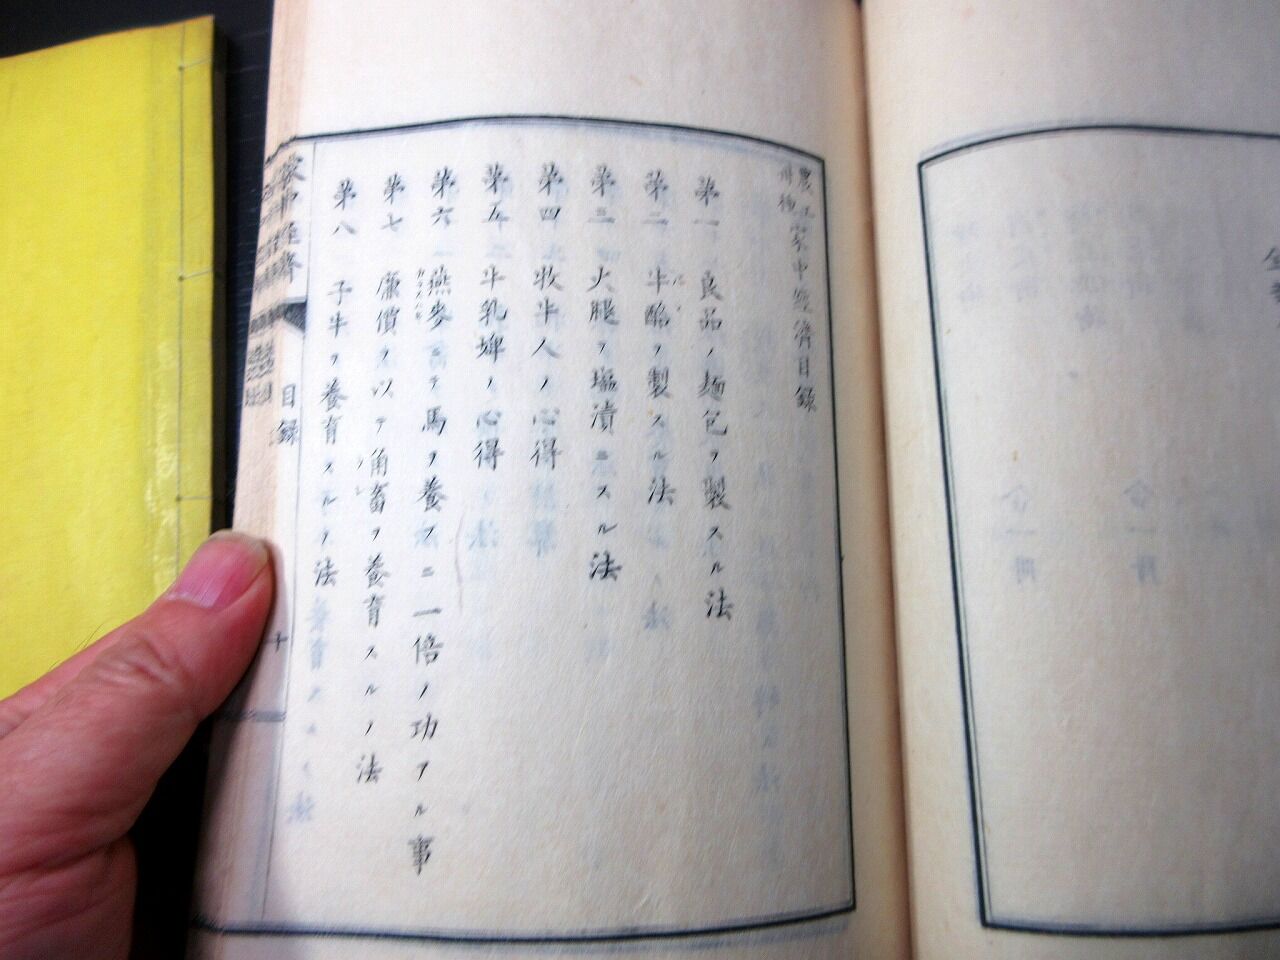 農工家中經濟目録
第一 良品ノ麺包ヲ製スル法
第二 牛酪ヲ製スル法
第三 火腿ヲ塩漬ニスル法
第四 牧牛人ノ心得
第五 牛乳婢ノ心得
第六 燕麥ニテ馬ヲ養フニ一倍ノ功アル事
第七 廉價ヲ以テ角畜ヲ養育スルノ法
第八 子牛ヲ養育スルノ法
家中經濟 目録 十